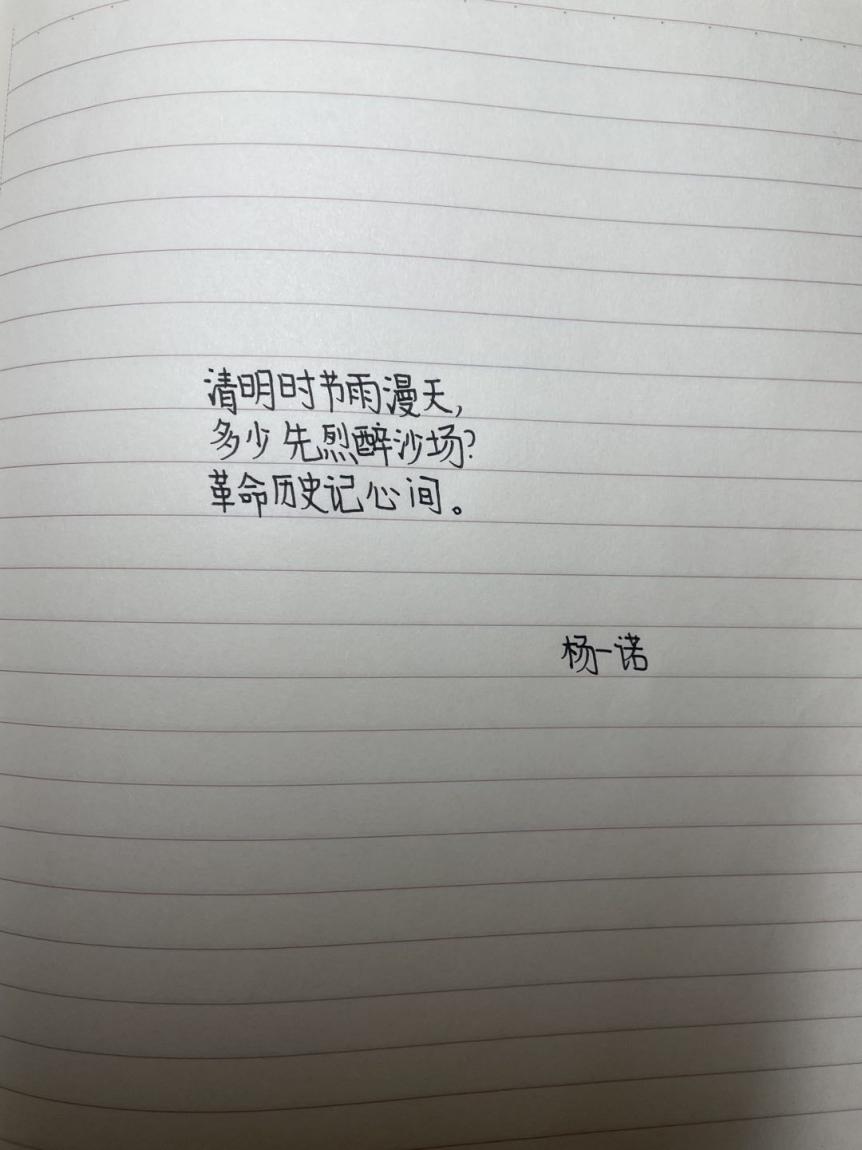 清明时节雨漫天,
多少先烈醉沙场?
革命历史记心间。
杨一诺